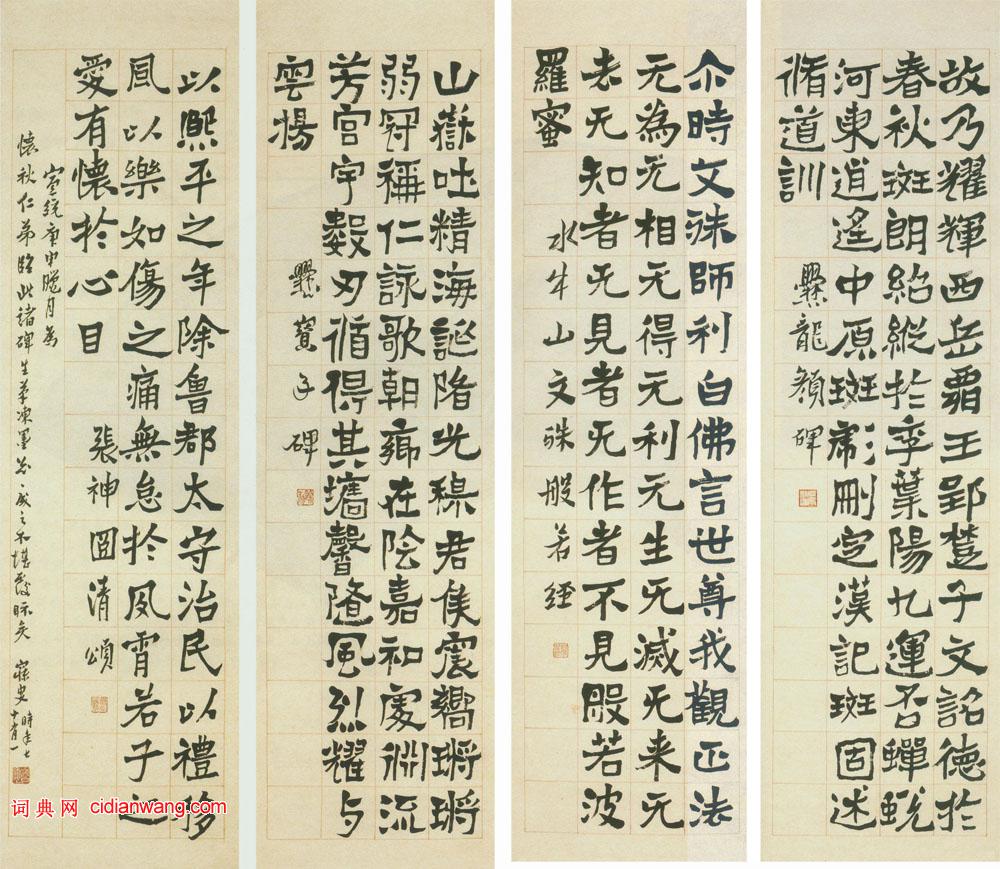 故乃耀輝西岳霸王郢楚子文詺德於
春秋斑朗紹縱於季葉陽九運否蟬蛻
河東逍遙中原斑彪刪定漢記斑固述
脩道訓
爨龍顏碑
尒時文殊師利白佛言世尊我觀正法
无為无相无得无利无生无滅无来无
去无知者无見者无作者不見般若波
羅蜜
水牛山文殊般若經
山嶽吐精海誕陏光穆君侯震嚮鏘鏘
弱冠稱仁詠歌朝鄉在陰嘉和處淵流
芳宮宇數刃循得其墻馨隨風烈耀与
雲揚
爨寶子碑
以熙平之年除魯郡太守治民以禮移
風以樂如傷之痛無怠於夙宵若子之
愛有懷於心目
張神冏清頌
宣統庚申臘月為
懷秋仁弟臨此諸碑生筆凍墨成之不堪發眎矣 寐叟時年七十有一
词典网 cidianwang.com